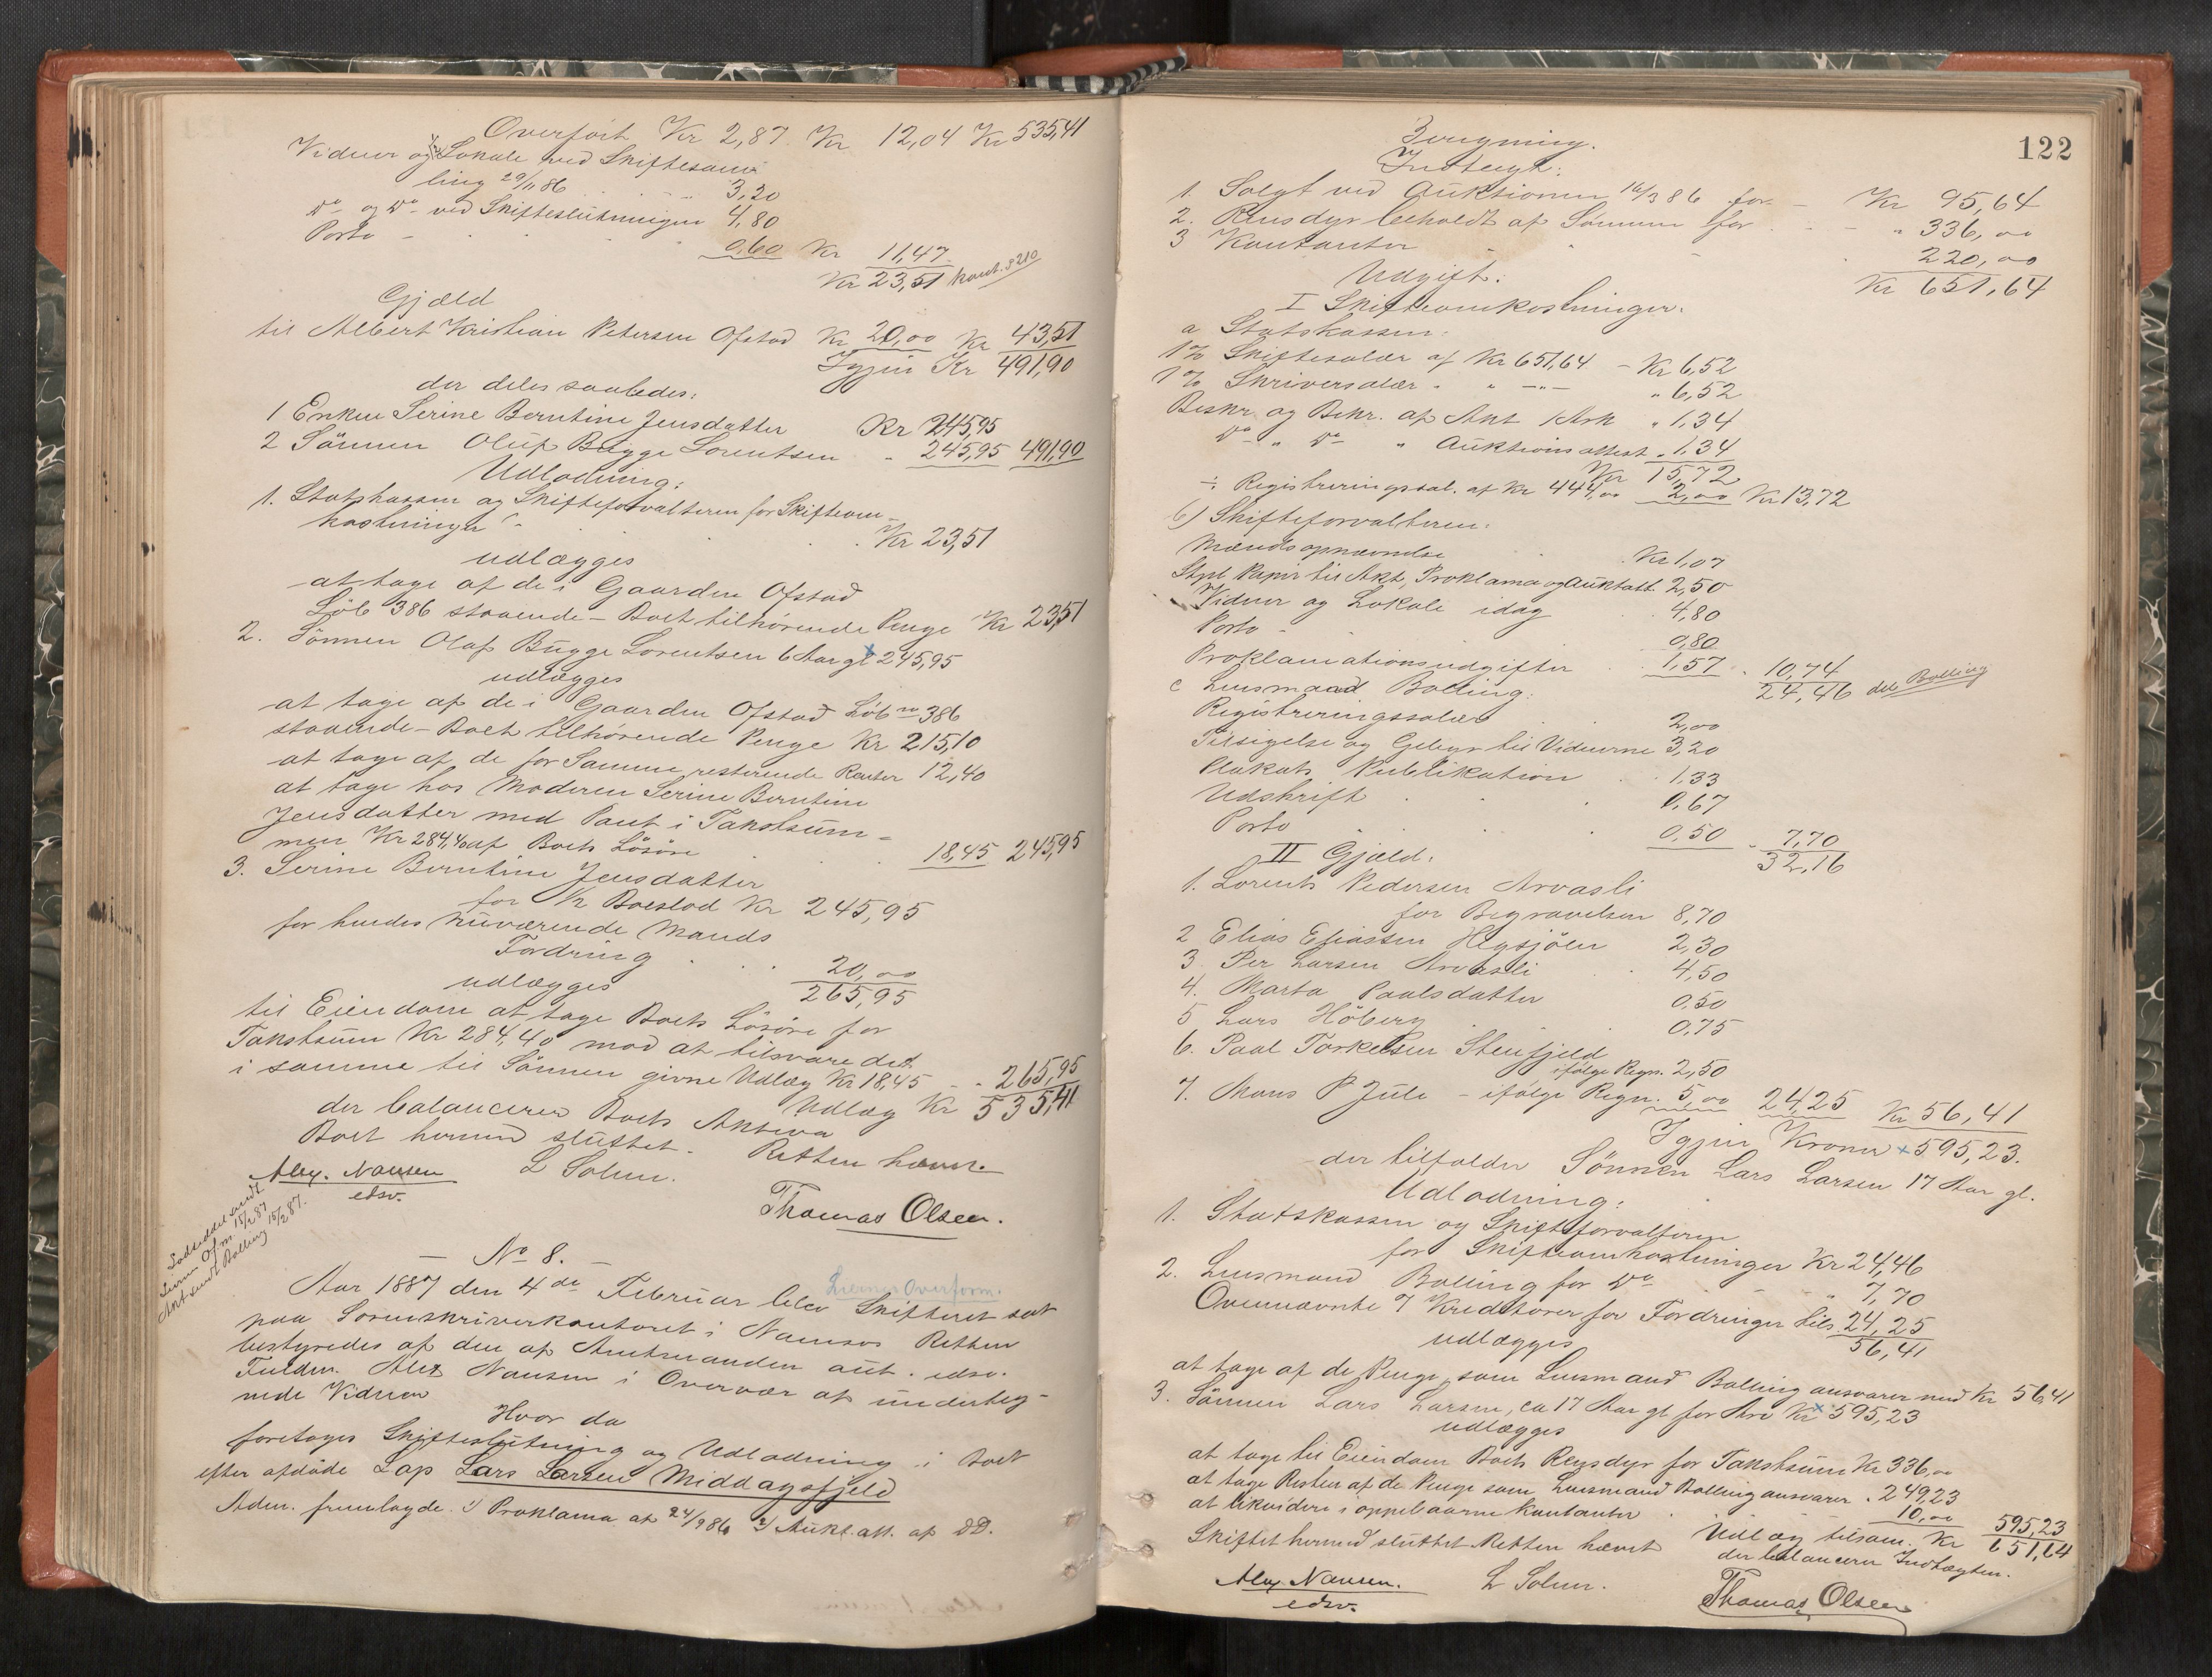 Overført Kr 2,87. Kr 12,04 Kr 535,41
Vidner og Lokale ved Skiftesam
ling 29/11 86 . . " 3,20
Do og Do ved Skifteslutningen 4,80
Porto - . . . 0,60 Kr 11,47
Kr 23,51
Gjæld
til Albert Kristian Petersen Ofstad Kr 20,00 Kr 43,51
Igjen Kr 491,90
der deles saaledes:
1 Enken Serine Berntine Jensdatter Kr 245,95
2 Sønnen Oluf Bugge Lorentsen " 245,95 491,90
Udlodning:
1. Statskassen og Skifteforvalteren for Skifteom-
kostninger . . . Kr 23,51
udlægges
at tage af de i Gaarden Ofstad
Løb 386 staaende - Boet tilhørende Penge Kr 23,51
2. Sønnen Olaf Bugge Lorentsen 6 Aar gl 245,95
udlægges
at tage af de i Gaarden Ofstad Løb no 386
staaende - Boet tilhørende Penge Kr 215,10
at tage af de for Samme resterende Renter 12,40
at tage hos Moderen Serine Berntine
Jensdatter med Pant i Takstsum-
men Kr 284,40 af Boets Løsøre . . 18,45 245,95
3. Serine Berntine Jensdatter
for 1/2 Boeslod Kr 245,95
for hendes nuværende Mands
Fordring . . . 20,00
udlægges 265,95
til Eiendom at tage Boets Løsøre for
Takstsum Kr 284,40 mod at tilsvare det
i samme til Sønnen givne Udlæg Kr 18,45 - " 265,95
Udlæg Kr 535,41
der balancerer Boets Aktiva
Boet hermed sluttet. Retten hævet.
Alex. Nansen L Solum.
edsv. Thomas Olsen.
Lodseddel sendt
Serine Ofm. 15/2 87
Akt sendt Bolling 15/2 87.
No 8.
Lierner Overform.
Aar 1887 den 4de Februar blev Skifteret sat
paa Sorenskriverkontoret i Namsos Retten
bestyredes af den af Amtmanden aut. edsv.
Fuldm. Alex Nansen i Overvær af underteg-
nede Vidner
Hvor da
foretoges Skifteslutning og Udlodning i Boet
efter afdøde Lap Lars Larsen Middagsfjeld
Adm. fremlagde 1) Proklama af 24/9 86 2) Aukt. att. af DD.
122
Beregning.
Indtægt:
1. Solgt ved Auktionen 16/3 86 for - Kr 95,64
2. Rensdyr beholdt af Sønnen for . - - " 336,00
3 Kontanter - . . 220,00
Kr 651,64
Udgift:
I Skifteomkostninger.
a Statskassen:
1% Skiftesalær af Kr 651,64 - Kr 6,52
1% Skriversalær " " -"- " 6,52
Beskr. og Bekr. af Akt 1 Ark " 1,34
Do " Do " Auktionsattest " 1,34
Kr 15,72
÷ Registreringssal. af Kr 444,00 2,00 Kr 13,72
b) Skifteforvalteren:
Mændsopnævnelse . Kr 1,07
Stpl. Papir til Akt, Proklama og Auktatt. 2,50
Vidner og Lokale idag . 4,80
Porto - . . 0,80
Proklamationsudgifter . . 1,57 " 10,74
24,46
c Lensmand Bolling:
Registreringssalær . . 2,00
Tilsigelse og Gebyr til Vidnerne 3,20
Plakats Publikation . . 1,33
Udskrift . . 0,67
Porto . . . 0,50 " 7,70
32,16
II Gjæld.
1. Lorents Pedersen Arvasli
for Begravelsen 8,70
2 Elias Eliassen Hegsjøen 2,30
3. Per Larsen Arvasli . 4,50
4. Marta Paalsdatter 0,50
5 Lars Høberg . . . 0,75
6. Paal Torkelsen Stenfjeld
ifølge Regn. 2,50
7. Mons P Jule - ifølge Regn. 5,00 24,25 Kr 56,41
Igjen Kroner 595,23.
der tilfalder Sønnen Lars Larsen 17 Aar gl.
Udlodning:
1. Statskassen og Skifteforvalteren
for Skifteomkostninger Kr 24,46
2. Lensmand Bolling for Do - " 7,70
Ovennævnte 7 Kreditorer for Fordringer tils. 24,25
udlægges 56,41
at tage af de Penge, som Lensmand Bolling ansvarer med Kr 56,41
3. Sønnen Lars Larsen, ca 17 Aar gl for Arv Kr 595,23
udlægges
at tage til Eiendom Boets Rensdyr for Takstsum Kr 336,00
at tage Resten af de Penge som Lensmand Bolling ansvarer " 249,23
at likvidere i oppebaarne Kontanter . 10,00 595,23
Udlæg tilsam. Kr 651,64
der balancerer Indtægten.
Skiftet hermed sluttet Retten hævet
Alex. Nansen. L Solum.
edsv. Thomas Olsen